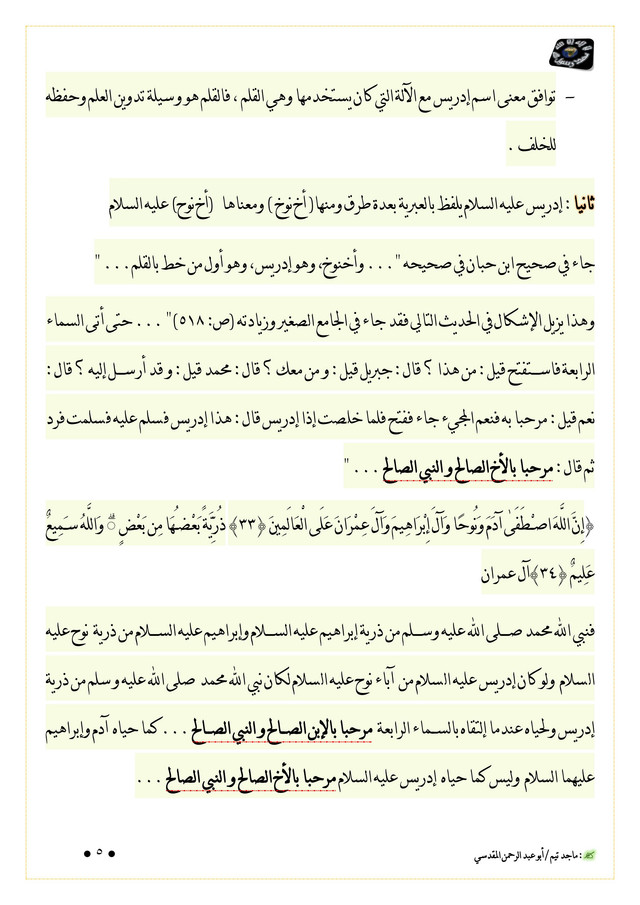 – توافق معنى اسم إدريس مع الآلة التي كان يستخدمها وهي القلم ، فالقلم هو وسيلة تدوين العلم وحفظه
للخلف .
ثانيا : إدريس عليه السلام يلفظ بالعبرية بعدة طرق ومنها ( أخ نوخ ) ومعناها (أخ نوح) عليه السلام
جاء في صحيح ابن حبان في صحيحه " . . . وأخنوخ، وهو إدريس، وهو أول من خط بالقلم . . . "
وهذا يزيل الإشكال في الحديث التالي فقد جاء في الجامع الصغير وزيادته (ص: ٥١٨) " . . . حتى أتى السماء
الرابعة فاستفتح قيل : من هذا ؟ قال : جبريل قيل : و من معك ؟ قال : محمد قيل : و قد أرسل إليه ؟ قال :
نعم قيل : مرحبا به فنعم المجيء جاء ففتح فلما خلصت إذا إدريس قال : هذا إدريس فسلم عليه فسلمت فرد
ثم قال : مرحبا بالأخ الصالح و النبي الصالح . . . "
﴿إِنَّ اللَّهَ اصْطَفَىٰ آدَمَ وَنُوحًا وَآلَ إِبْرَاهِيمَ وَآلَ عِمْرَانَ عَلَى الْعَالَمِينَ ﴿٣٣﴾ ذُرِّيَّةً بَعْضُهَا مِن بَعْضٍ ۗ وَاللَّهُ سَمِيعٌ
عَلِيمٌ ﴿٣٤﴾آل عمران
فنبي الله محمد صلى الله عليه وسلم من ذرية إبراهيم عليه السلام وإبراهيم عليه السلام من ذرية نوح عليه
السلام ولو كان إدريس عليه السلام من آباء نوح عليه السلام لكان نبي الله محمد صلى الله عليه وسلم من ذرية
إدريس ولحياه عندما إلتقاه بالسماء الرابعة مرحبا بالإبن الصالح و النبي الصالح . . . كما حياه آدم وإبراهيم
عليهما السلام وليس كما حياه إدريس عليه السلام مرحبا بالأخ الصالح و النبي الصالح . . .
: ماجد تيم / أبو عبد الرحمن المقدسي
● ٥ ●